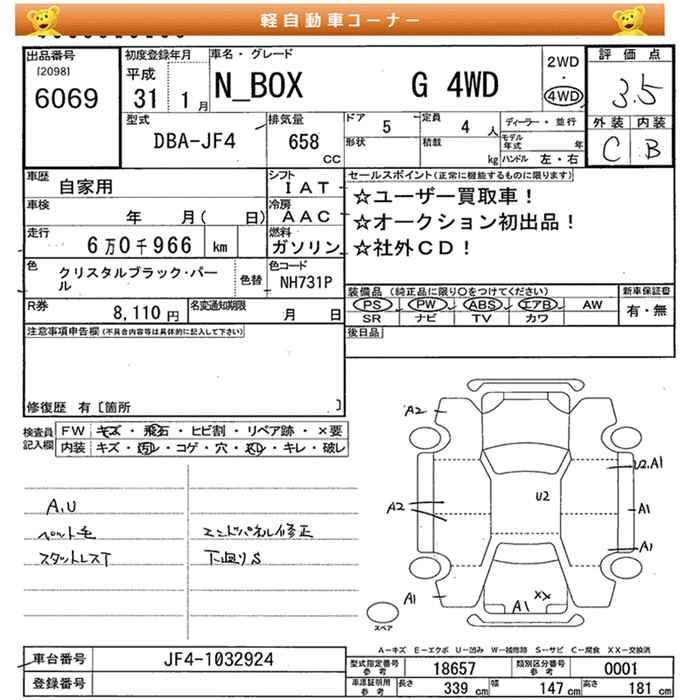 軽自動車コーナー
出品番号
[2098]
6069
初度登録年月
平成
31 1月
車名・グレード
N_BOX G 4WD
2WD
・
4WD
評価点
3.5
外装 内装
C B
型式
DBA-JF4
排気量
658
CC
ドア
5
形状
定員
4 人
積載
kg
ディーラー・並行
モデル年式 年
ハンドル 左・右
車歴
自家用
シフト
IAT
車検
年 月( 日)
冷房
AAC
走行
6万0千966 km
燃料
ガソリン
色
クリスタルブラック・パール
色替
色コード
NH731P
R券
8,110円
名変通知期限
月 日
セールスポイント(正常に機能するものに限ります)
☆ユーザー買取車!
☆オークション初出品!
☆社外CD!
装備品(純正品に限り○をつけてください)
PS PW ABS エアB AW
SR ナビ TV カワ
新車保証書
有・無
後日品
注意事項申告欄(不具合内容等は具体的に記入して下さい)
修復歴 有〔箇所 〕
検査員記入欄
FW キズ・飛石・ヒビ割・リペア跡・×要
内装 キズ・汚レ・コゲ・穴・スレ・キレ・破レ
A.U
ペット毛
スタットレスT
エンドパネル修正
下廻りS
A2
U2.A1
U2
A2
A1
A1
A1
A1
XX
スペア
A-キズ E-エクボ U-凹み W-補修跡 S-サビ C-腐食 XX-交換済
車台番号
JF4-1032924
登録番号
型式指定番号
参考
18657
類別区分番号
参考
0001
車庫証明用
参考
長さ 339 cm 幅 147 cm 高さ 181 cm